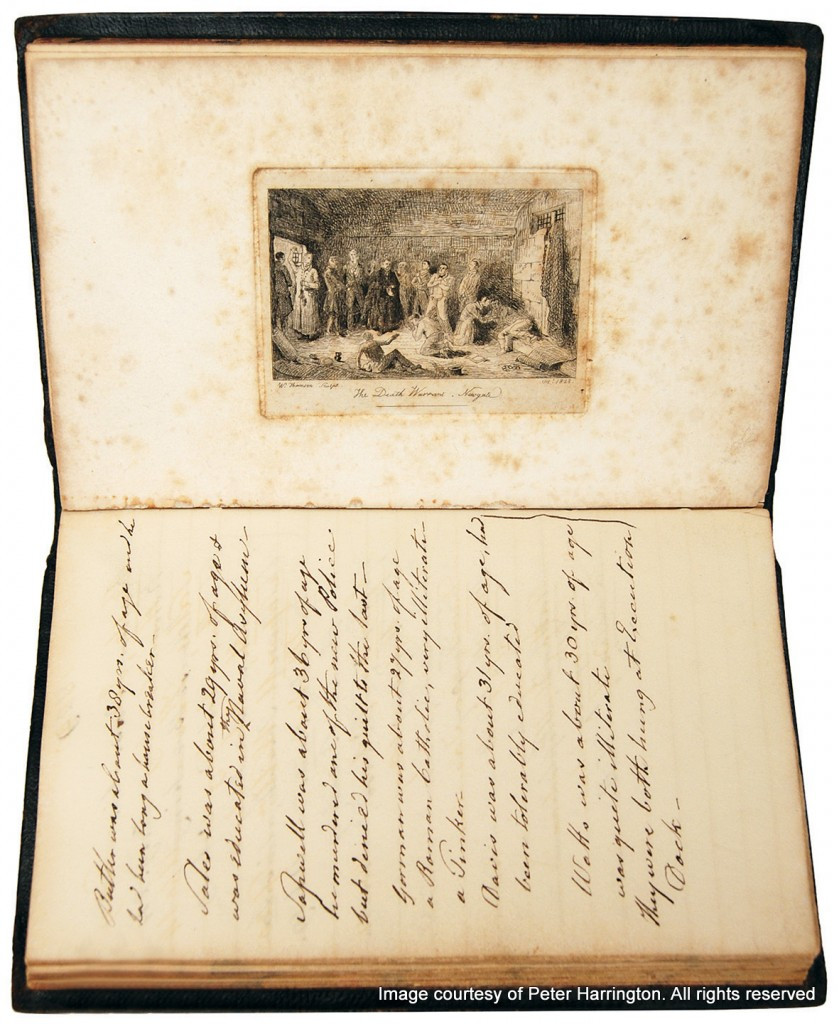 The Death Warrant. Newgate
Butler was about 38 yrs. of age and he
had been long a house breaker—
Sales was about 29 yrs. of age &
was educated in the Naval Asylum—
Sapwell was about 36 yrs of age
he murdered one of the new Police
but denied his guilt to the last—
Gorman was about 27 yrs. of age
a Roman Catholic, very illiterate—
a Tinker—
Davis was about 31 yrs. of age, had
been tolerably educated
Watts was about 30 yrs of age
was quite illiterate
They were both hung at Execution
Dock—
Image courtesy of Peter Harrington. All rights reserved